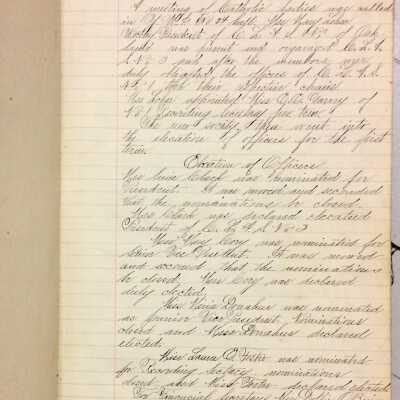 A meeting of Catholic ladies was called
in
President of C. L. A. S. No. of Oak
land was present and organized C. L. A. S.
No 3 and after the members were
duly obligated the officers of C. L. A. S.
No. 1 took their respective chairs
appointed Miss of
No 1 Recording Secretary pro tem.
The new society then went into
the election of officers for the first
term.
Election of Officers
Clark was nominated for
President. It was moved and seconded
that the nominations be closed.
Miss Clark was declared elected
President of C. L. A. S. No 3
Miss May Cory was nominated for
Senior Vice President. It was moved
and second that the nominations
be closed. Miss Cory was declared
duly elected.
Miss Donahue was nominated
as Junior Vice President, Nominations
closed and Miss Donahue declared
elected.
Miss Laura C. was nominated
for Recording Secretary nominations
closed and Miss declared elected
For Financial Secretary Miss